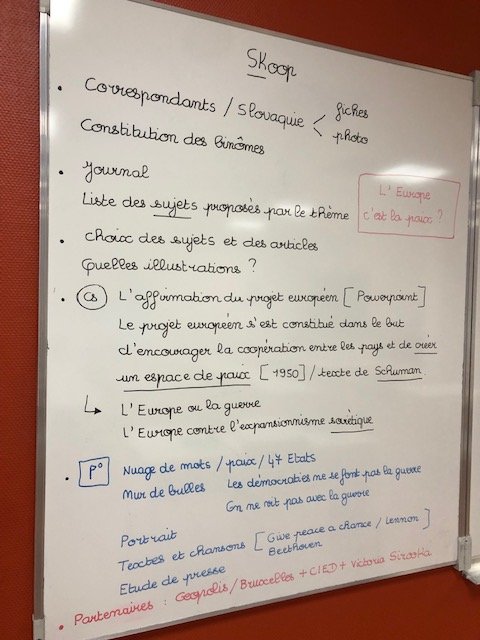 SKoop
• Correspondants / Slovaquie < fiches
photo
Constitution des binômes
• Journal
Liste des sujets proposés par le thème
L'Europe
c'est la paix ?
• Choix des sujets et des articles
Quelles illustrations ?
• Cs L'affirmation du projet européen [Powerpoint]
Le projet européen s'est constitué dans le but
d'encourager la coopération entre les pays et de créer
un espace de paix [1950] / texte de Schuman
↳ L'Europe ou la guerre
L'Europe contre l'expansionnisme soviétique
• P° Nuage de mots / paix / 47 Etats
Mur de bulles Les démocraties ne se font pas la guerre
On ne vit pas avec la guerre
Portrait
Textes et chansons [Give peace a chance / Lennon]
Beethoven
Etude de presse
• Partenaires : Geopolis / Bruxelles + CIED + Victoria